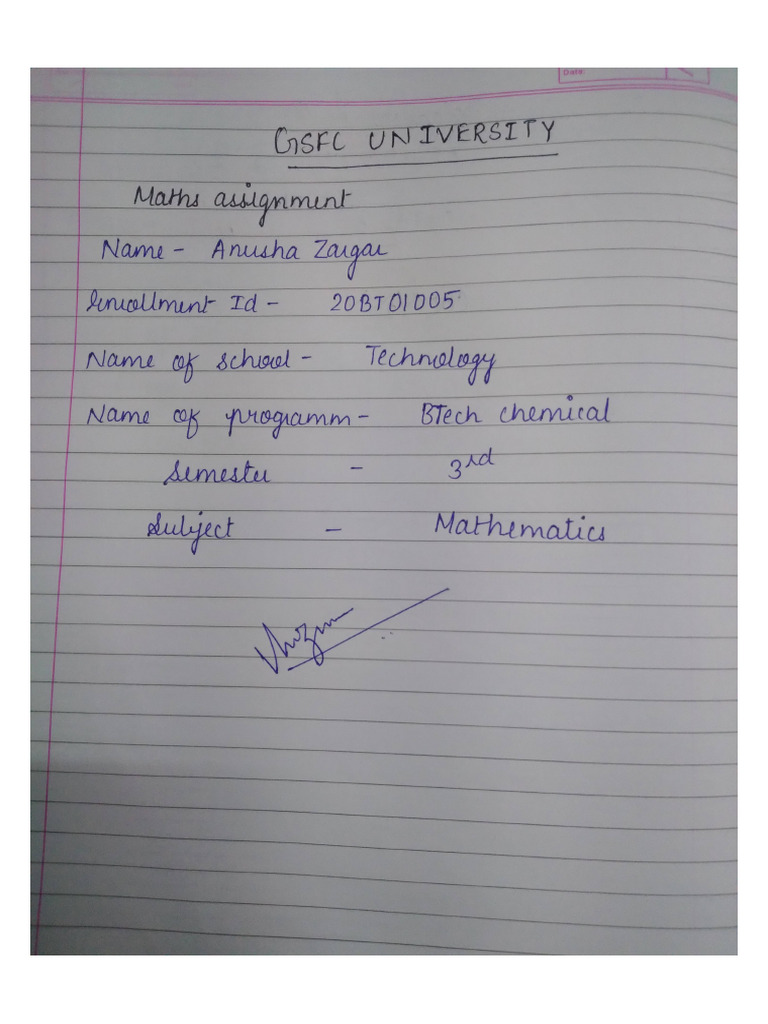 Date:
GSFC UNIVERSITY
Maths assignment
Name - Anusha Zargar
Enrollment Id - 20BT01005
Name of school - Technology
Name of programm - BTech chemical
Semester - 3rd
Subject - Mathematics